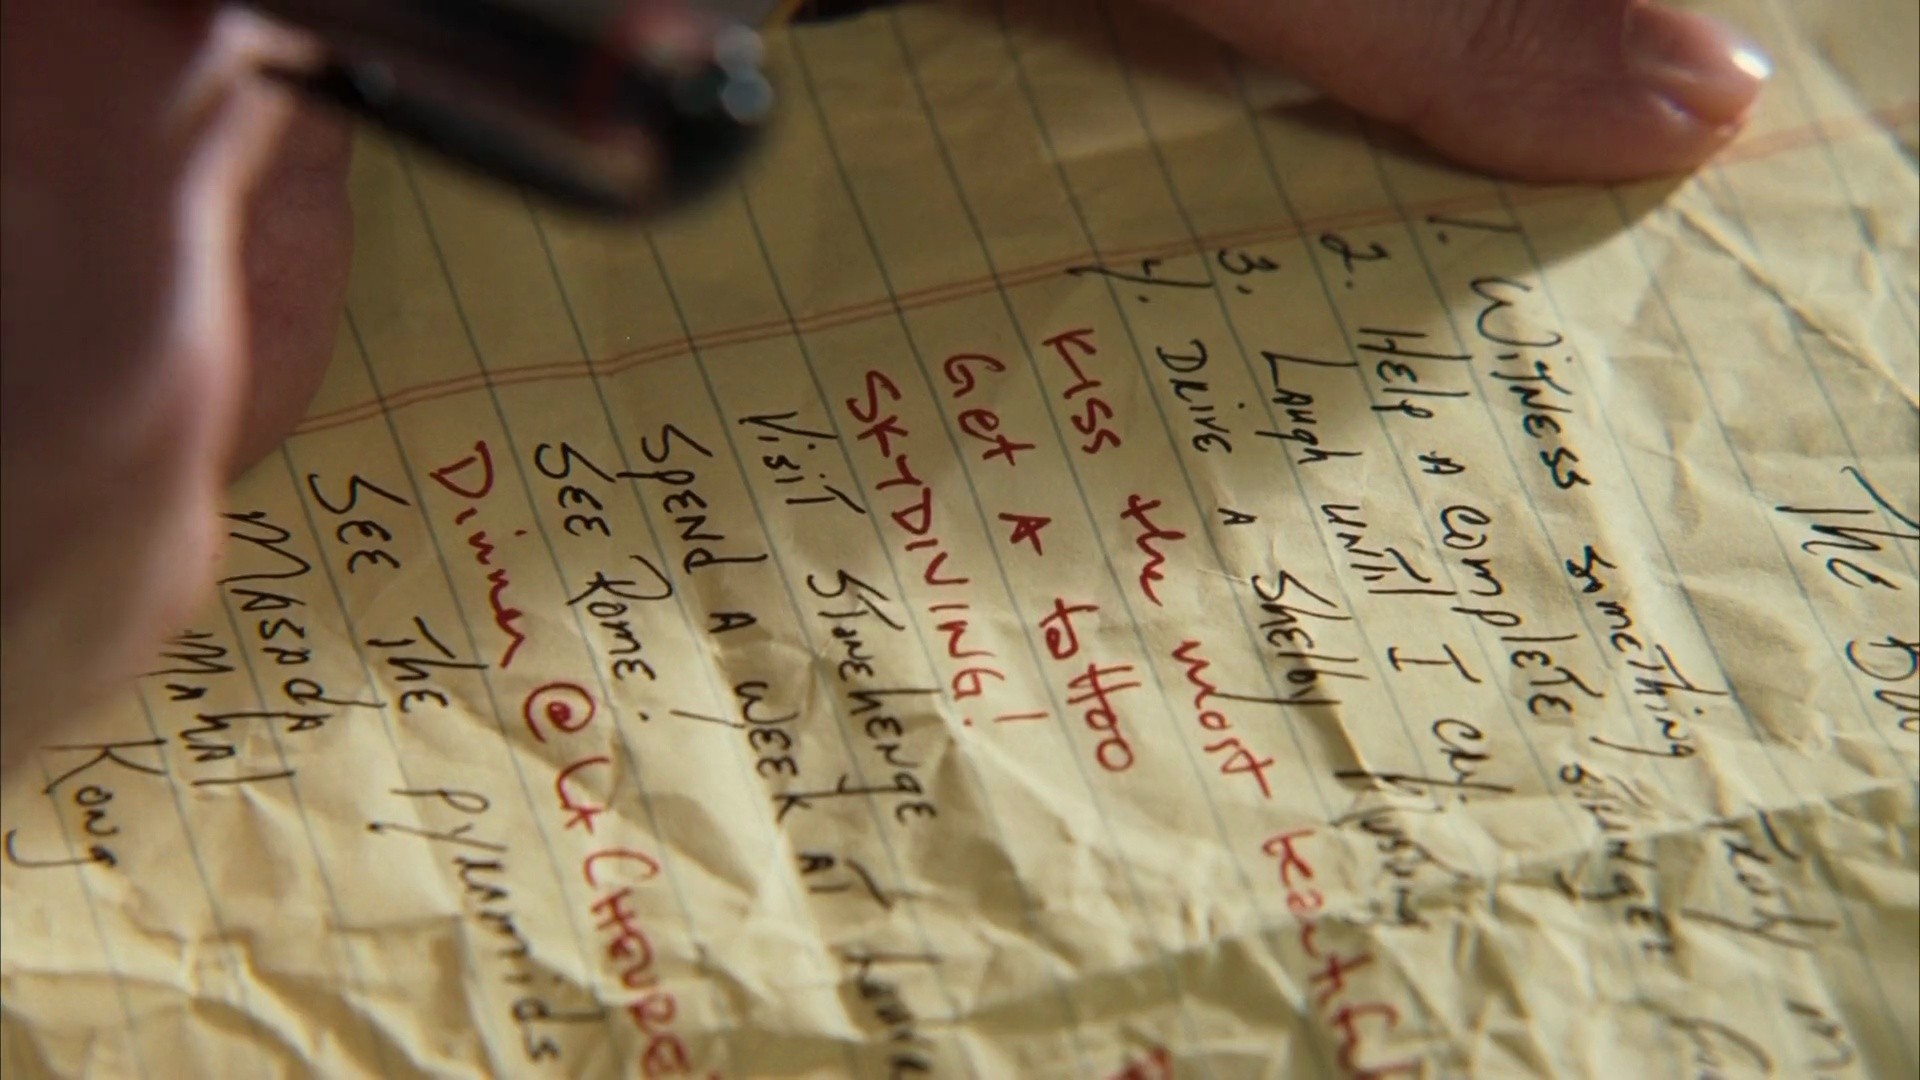 The Bu
1. Witness something Truly m
2. Help a complete stranger
3. Laugh until I cry
4. Drive a Shelby Mustang
Kiss the most
Get A tattoo
SKYDIVING!
Visit Stonehenge
Spend a week at
See Rome!
Dinner @ LA CHEVRE
See The pyramids
Masada
Mahal
Kong